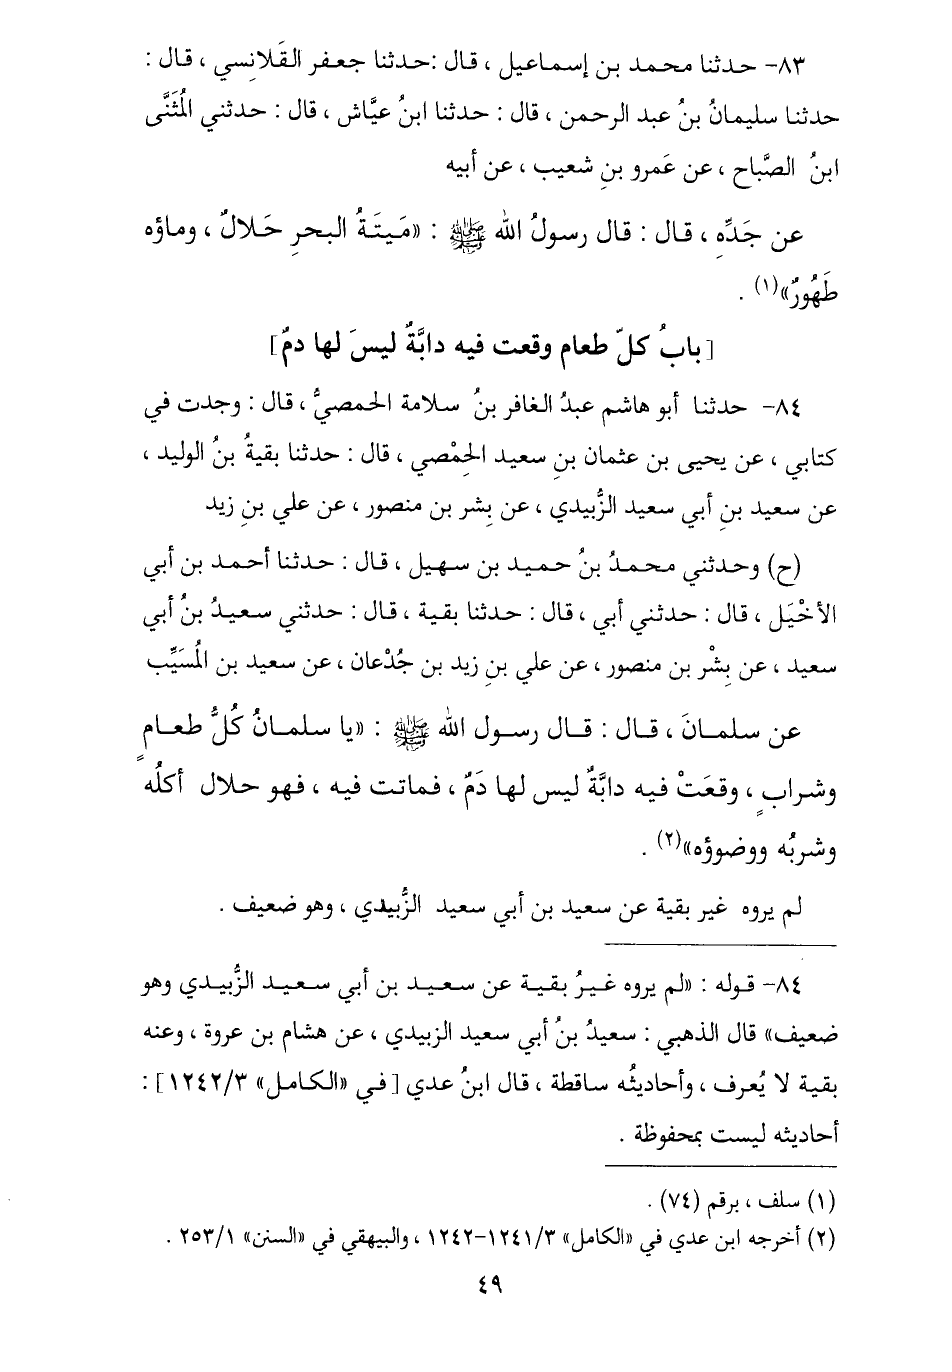 ٨٣- حدثنا محمد بن إسماعيل ، قال :حدثنا جعفر القَلانِسي ، قال :
حدثنا سليمانُ بنُ عبد الرحمن ، قال : حدثنا ابنُ عيَّاش ، قال : حدثني المُثَنَّى
ابنُ الصَّباح ، عن عَمرو بنِ شعيب ، عن أبيه
عن جَدِّهِ ، قال : قال رسولُ الله ﷺ : «مَيتَةُ البحرِ حَلالٌ ، وماؤه
طَهُورٌ»(١) .
[بابُ كلّ طعام وقعت فيه دابَّةٌ ليسَ لها دمٌ]
٨٤- حدثنا أبو هاشم عبدُ الغافر بنُ سلامة الحمصيُّ ، قال : وجدت في
كتابي ، عن يحيى بن عثمان بنِ سعيد الحِمْصي ، قال : حدثنا بقيةُ بنُ الوليد ،
عن سعيد بنِ أبي سعيد الزُّبيدي ، عن بِشر بن منصور ، عن علي بنِ زيد
(ح) وحدثني محمدُ بنُ حميد بن سهيل ، قال : حدثنا أحمد بن أبي
الأخْيَل ، قال : حدثني أبي ، قال : حدثنا بقية ، قال : حدثني سعيدُ بنُ أبي
سعيد ، عن بِشْر بن منصور ، عن علي بنِ زيد بن جُدْعان ، عن سعيد بن المُسَيِّب
عن سلمـانَ ، قـال : قـال رسـول الله ﷺ : «يا سلمـانُ كُلُّ طعـامٍ
وشرابٍ ، وقعَتْ فيه دابَّةٌ ليس لها دَمٌ ، فماتت فيه ، فهو حلال أكلُه
وشربُه ووضوؤه»(٢) .
لم يروه غير بقية عن سعيد بن أبي سعيد الزُّبيدي ، وهو ضعيف .
٨٤- قـوله : «لم يروه غـيرُ بقـية عن سعـيد بن أبي سعـيد الزُّبيـدي وهو
ضعيف» قال الذهبي : سعيدُ بنُ أبي سعيد الزبيدي ، عن هشام بن عروة ، وعنه
بقية لا يُعرف ، وأحاديثُه ساقطة ، قال ابنُ عدي [في «الكامل» ١٢٤٢/٣] :
أحاديثه ليست بمحفوظة .
(١) سلف ، برقم (٧٤) .
(٢) أخرجه ابن عدي في «الكامل» ١٢٤١/٣-١٢٤٢ ، والبيهقي في «السنن» ٢٥٣/١ .
٤٩